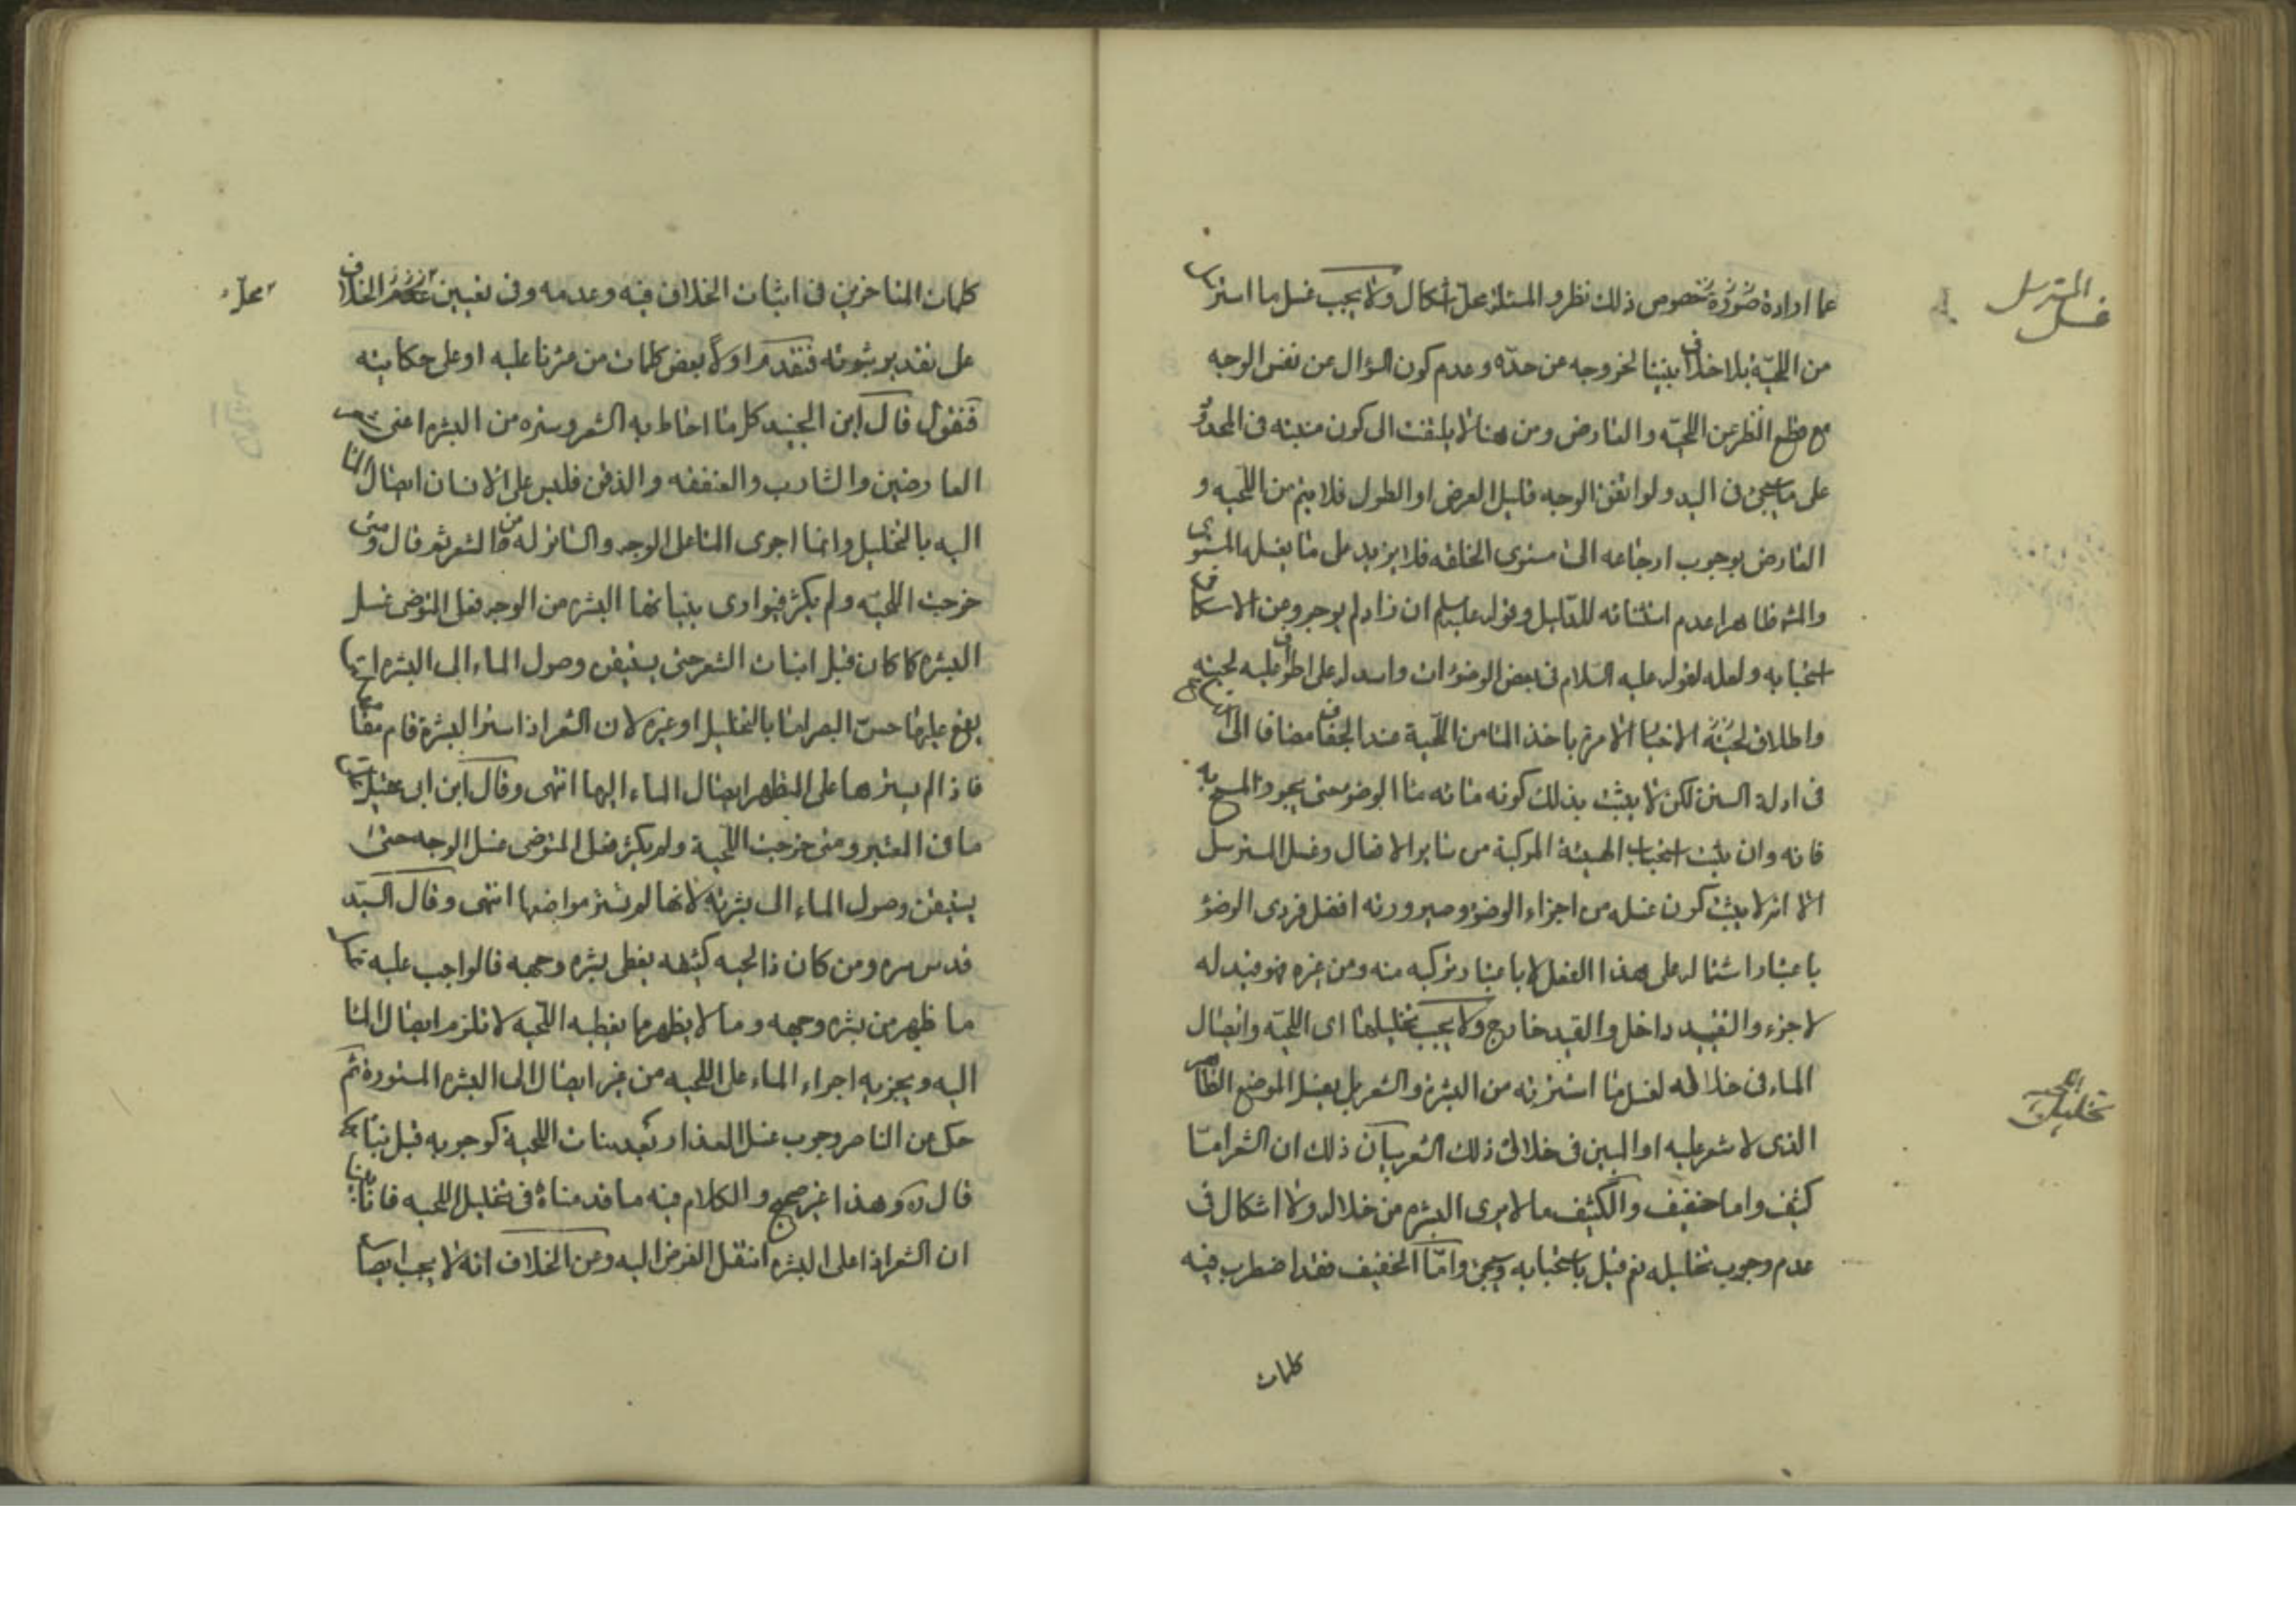 عما ارادة صورة خصوص ذلك نظر و المسئلة محل اشكال ولا يجب غسل ما استرسل
من اللحية بلا خلاف بيننا لخروجه عن حده وعدم كون السؤال عن نفس الوجه
مع قطع النظر عن اللحية والعارض ومن هنا لا يلتفت الى كون منبته في المحدود
على ما سيجئ في اليد ولو اتفق الوجه قليل العرض او الطول فلا يتم من اللحية و
العارض بوجوب ارجاعه الى مستوى الخلقه فلا يزيد على ما يغسله المستوى
والمش ظاهرا عدم استثنائه للدليل وقوله عليه السلم ان زاد لم يوجر وعن الاسكافي
استحبابه ولعله لقوله عليه السلام في بعض الوضوءات واسدله على اطراف لحيته
واطلاق لحيته الاخبار الامرة باخذ الماء من اللحية عند الجفاف مضافا الى
في ادلة السنن لكن لا يثبت بذلك كونه مائه ماء الوضوء حتى يجوز المسح به
فانه وان يثبت استحباب الهيئة المركبة من سائر الافعال وغسل المسترسل
الا انه لا يثبت كون غسله من اجزاء الوضوء وصيرورته افضل فردى الوضوء
باعتبار اشتماله على هذا الفعل لا باعتبار تركبه منه ومن غيره فهو قيد له
لا جزء والتقييد داخل والقيد خارج ولا يجب تخليلها اى اللحية وايصال
الماء في خلاله لغسل ما استترته من البشرة والشعر بل يغسل الموضع الظاهر
الذى لا شعر عليه او المبين في خلال ذلك الشعر بيان ذلك ان الشعر اما
كثيف واما خفيف والكثيف ما لا يرى البشره من خلاله ولا اشكال في
عدم وجوب تخليله نعم قيل باستحبابه وسيجئ واما الخفيف فقد اضطرب فيه
كلمات
المسترسل
غسل
اللحية
تخليل
كلمات المتاخرين في اثبات الخلاف فيه وعدمه وفي تعيين الخلاف
محل
على تقدير ثبوته فنقدم اولا بعض كلمات من عثرنا عليه او على حكايته
فنقول قال ابن الجنيد كل ما احاط به الشعر وستره من البشره اعنى شعر
العارضين والشارب والعنفقه والذقن فليس على الانسان ايصال الماء
اليه بالتخليل وانما اجرى الماء على الوجه والساتر له من الشعر ثم قال ومتى
خرجت اللحيه ولم يكثر فيوارى بنباتها البشره من الوجه فعلى المتوضى غسل
البشره كما كان قبل انبات الشعر حتى يستيقن وصول الماء الى البشره التى
يقع عليها حس البصر اما بالتخليل او غيره لان الشعر اذا ستر البشرة قام مقامها
فاذا لم يسترها على المظهر ايصال الماء اليها انتهى وقال ابن ابى عقيل
ما في المعتبر ومتى خرجت اللحية ولم يكثر فعلى المتوضى غسل الوجه حتى
يستيقن وصول الماء الى بشرته لانها لم تستر مواضعها انتهى وقال السيد
قدس سره ومن كان ذا لحيه كثيفه يغطى بشره وجهه فالواجب عليه غسل
ما ظهر من بشره وجهه وما لا يظهر مما يغطيه اللحيه لا تلزم ايصال الماء
اليه ويجزيه اجراء الماء على اللحيه من غير ايصال الى البشره المستورة ثم
حكى عن الناصر وجوب غسل العذار بعد نبات اللحية كوجوبه قبل نباتها
قال ره وهذا غير صحيح والكلام فيه ما قدمناه في تخليل اللحيه فانا بينا
ان الشعر اذا على البشره انتقل الفرض اليه وعن الخلاف انه لا يجب ايصال